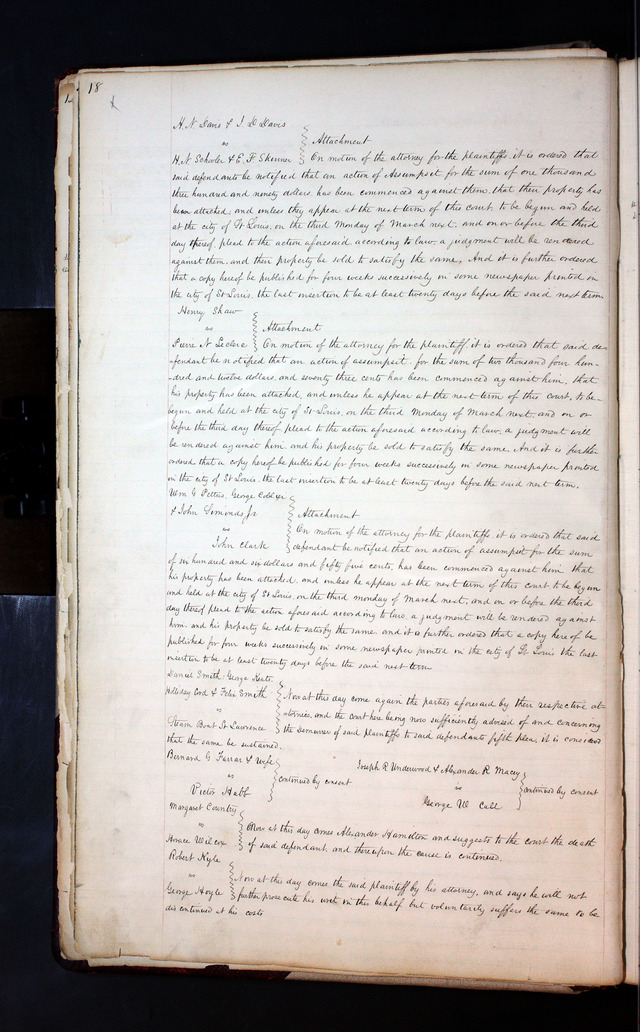 18
H. N. Davis & I. D Davis
vs
Attachment
H. N. Schooler & E. F. Skinner On motion of the attorney for the plaintiffs it is ordered that
said defendants be notified that an action of Assumpsit for the sum of one thousand
three hundred and ninety dollars has been commenced against them, that their property has
been attached, and unless they appear at the next term of this court, to be begun and held
at the city of St Louis, on the third Monday of March next, and on or before the third
day thereof, plead to the action aforesaid according to law, a judgment will be rendered
against them, and their property be sold to satisfy the same. And it is further ordered
that a copy hereof be published for four weeks successively in some newspaper printed in
the city of St Louis, the last insertion to be at least twenty days before the said next term.
Henry Shaw
vs
Attachment
Pierre N Leclere On motion of the attorney for the plaintiff it is ordered that said de-
-fendant be notified that an action of assumpsit, for the sum of two thousand four hun-
-dred and twelve dollars, and seventy three cents has been commenced against him, that
his property has been attached, and unless he appear at the next term of this court, to be
begun and held at the city of St Louis, on the third Monday of March next, and on or
before the third day thereof plead to the action aforesaid according to law, a judgment will
be rendered against him, and his property be sold to satisfy the same. And it is further
ordered that a copy hereof be published for four weeks successively in some newspaper printed
in the city of St Louis, the last insertion to be at least twenty days before the said next term.
Wm G Pettus, George Collier
& John Simonds Jr
Attachment
vs
On motion of the attorney for the plaintiffs, it is ordered that said
John Clark defendant be notified that an action of assumpsit for the sum
of six hundred and six dollars and fifty five cents, has been commenced against him that
his property has been attached, and unless he appear at the next term of this court to be begun
and held at the city of St Louis, on the third monday of March next, and on or before the third
day thereof plead to the action aforesaid according to law, a judgment will be rendered against
him and his property be sold to satisfy the same. and it is further ordered that a copy hereof be
published for four weeks successively in some newspaper printed in the city of St Louis the last
insertion to be at least twenty days before the said next term
Daniel Smith, George
Holliday Cord & Felix Smith Now at this day come again the parties aforesaid by their respective at-
vs
-tornies, and the court here being now sufficiently advised of and concerning
Steam Boat St Lawrence the Demurrer of said plaintiffs to said defendants fifth plea, it is considered
that the same be sustained.
Bernard G Farrar & Wife
vs
continued by consent
Victor Habb
Joseph R Underwood & Alexander R Macey
vs
continued by consent
George W Call
Margaret Country
vs
Now at this day comes Alexander Hamilton and suggests to the court the death
Horace Wilcox of said defendant, and thereupon the cause is continued.
Robert Kyle
vs
Now at this day comes the said plaintiff by his attorney, and says he will not
George Hoyle further prosecute his writ in this behalf but voluntarily suffers the same to be
discontinued at his costs